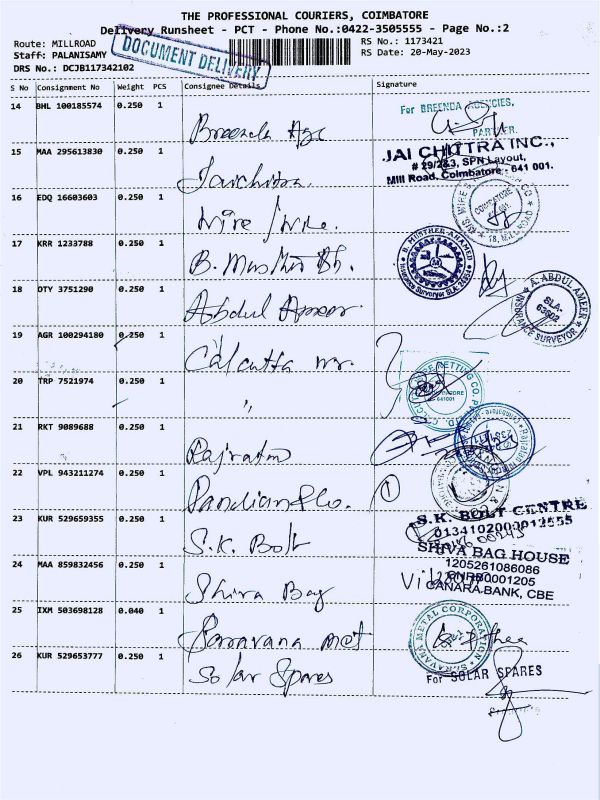 THE PROFESSIONAL COURIERS, COIMBATORE
Delivery Runsheet - PCT - Phone No.:0422-3505555 - Page No.:2
Route: MILLROAD
Staff: PALANISAMY
DRS No.: DCJB117342102
DOCUMENT DELIVERY
RS No.: 1173421
RS Date: 20-May-2023
S No Consignment No Weight PCS Consignee Details Signature
14 BHL 100185574 0.250 1 Breenda Ags
For BREENDA AGENCIES,
PARTNER.
15 MAA 295613830 0.250 1 Jaichitra
JAI CHITTRA INC.,
# 29/2&3, SPN Layout,
Mill Road, Coimbatore - 641 001.
16 EDQ 16603603 0.250 1 Wire / Wire.
COIMBATORE
17 KRR 1233788 0.250 1 B. Musther Bh.
B. MUSTHER AHAMED
Insurance Surveyor
18 DTY 3751290 0.250 1 Abdul Ameer
A. ABDUL AMEER
SLA.
63902
INSURANCE SURVEYOR
19 AGR 100294180 0.250 1 Calcutta
20 TRP 7521974 0.250 1 "
641001
21 RKT 9089688 0.250 1 Rajratan
22 VPL 943211274 0.250 1 Pandian & Co.
1
23 KUR 529659355 0.250 1 S.K. Bolt
S.K. BOLT CENTRE
24 MAA 859832456 0.250 1 Shiva Bag
SHIVA BAG HOUSE
1205261086086
CNRB0001205
CANARA BANK, CBE
25 IXM 503698128 0.040 1 Saravana met
SARAVANA METAL CORPORATION
26 KUR 529653777 0.250 1 Solar Spares
For SOLAR SPARES